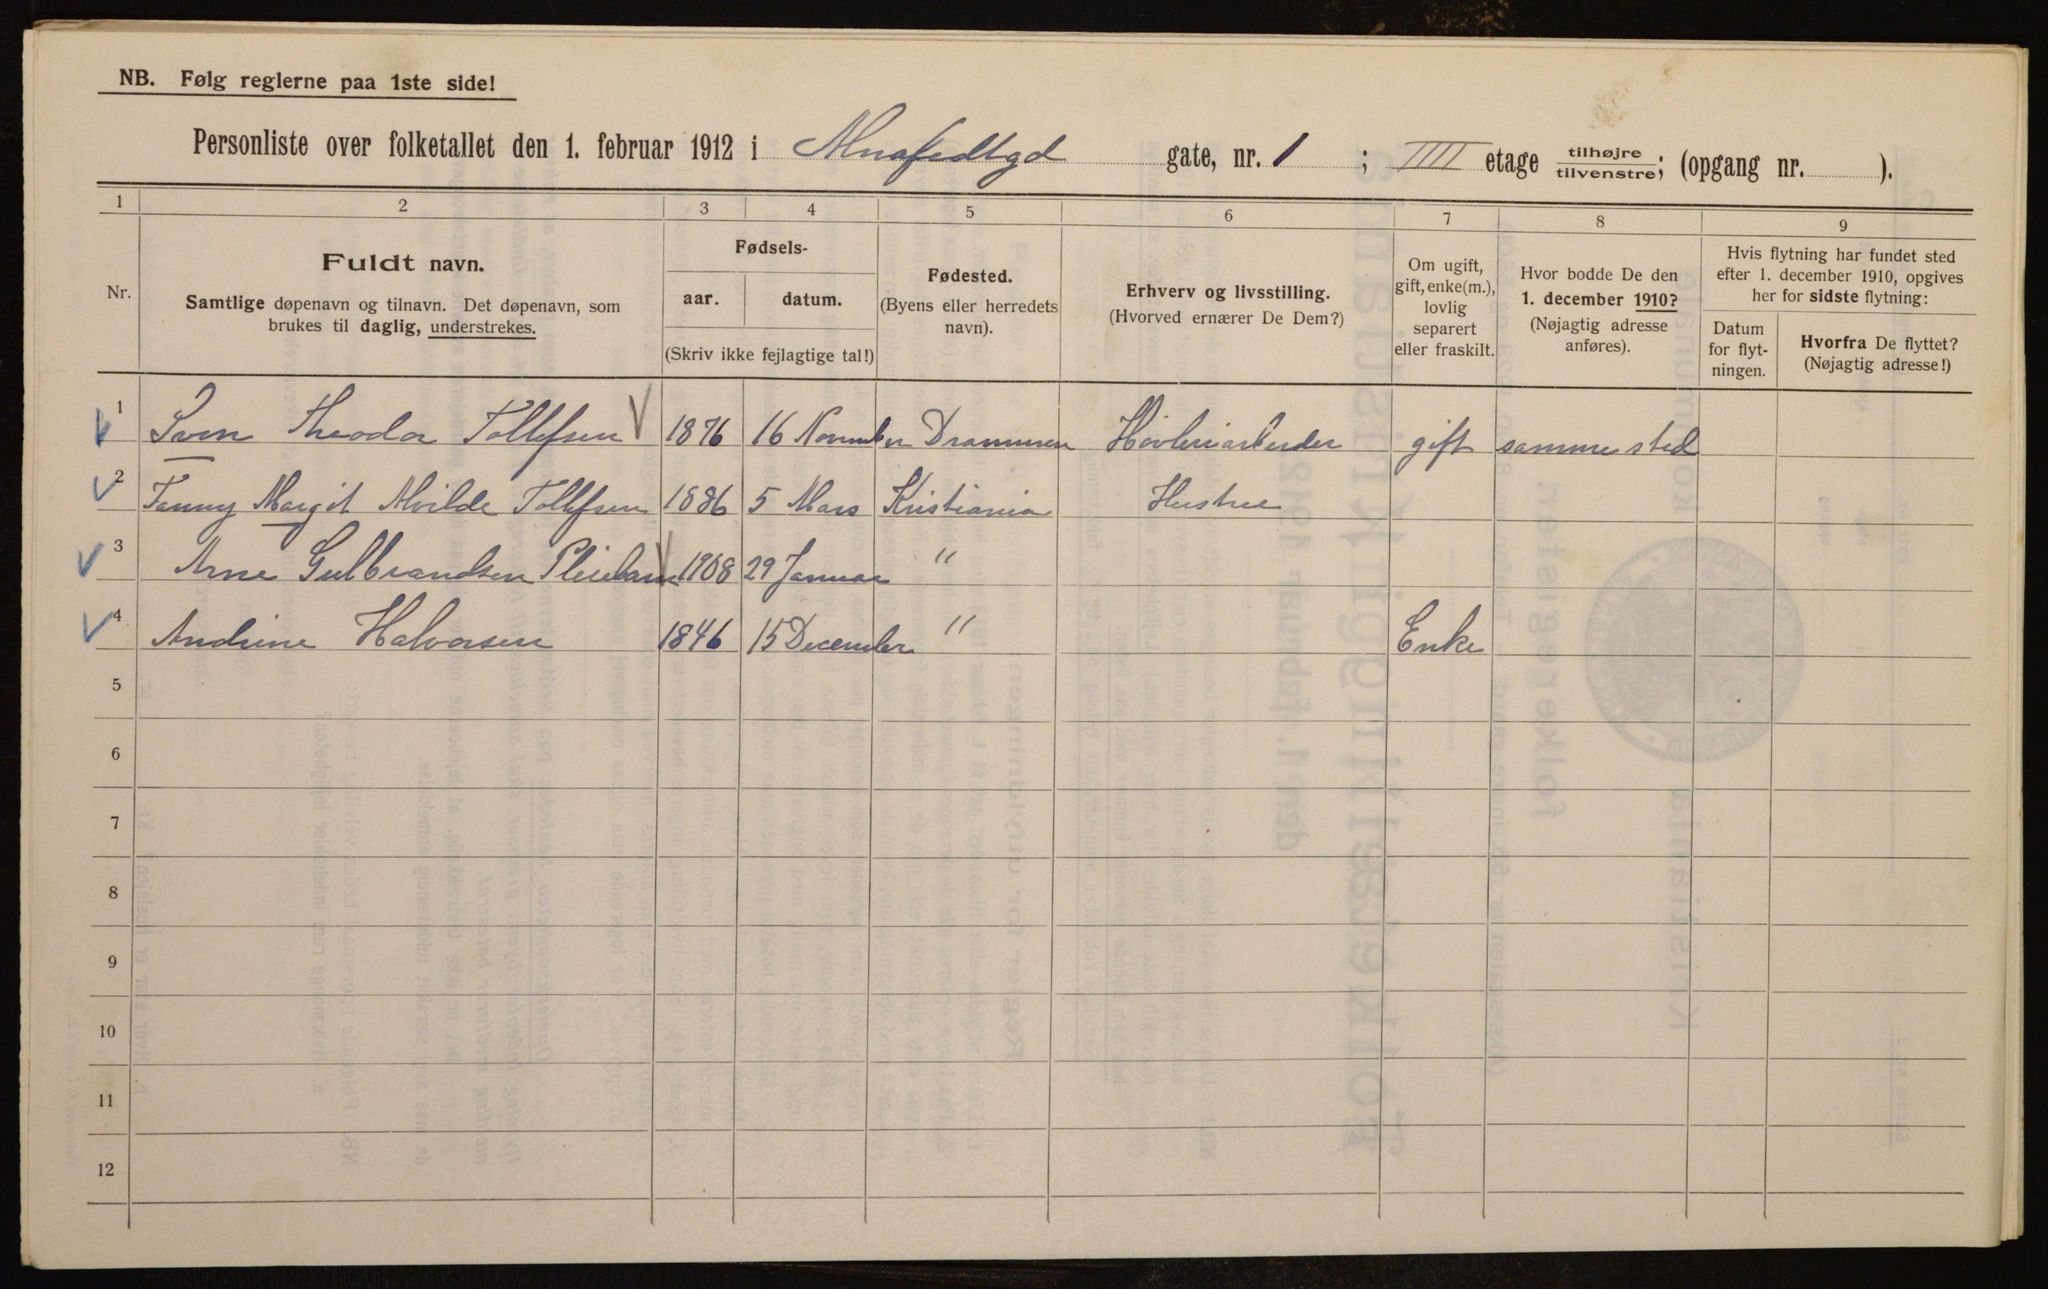 NB. Følg reglerne paa 1ste side!
Personliste over folketallet den 1. februar 1912 i Almafedtgd gate, nr. 1 ; IIII etage tilhøjre/tilvenstre; (opgang nr. ).
1 2 3 4 5 6 7 8 9
Nr.
Fuldt navn.
Samtlige døpenavn og tilnavn. Det døpenavn, som
brukes til daglig, understrekes.
Fødsels-
aar. datum.
(Skriv ikke fejlagtige tal!)
Fødested.
(Byens eller herredets
navn).
Erhverv og livsstilling.
(Hvorved ernærer De Dem?)
Om ugift,
gift, enke(m.),
lovlig
separert
eller fraskilt.
Hvor bodde De den
1. december 1910?
(Nøjagtig adresse
anføres).
Hvis flytning har fundet sted
efter 1. december 1910, opgives
her for sidste flytning:
Datum
for flyt-
ningen.
Hvorfra De flyttet?
(Nøjagtig adresse!)
1 Sven Theodor Tollefsen 1876 16 November Drammen Høvleriarbeider gift samme sted
2 Fanny Margit Alvilde Tollefsen 1886 5 Mars Kristiania Hustru
3 Arne Gulbrandsen Pleiebarn 1908 29 Januar "
4 Andrine Halvorsen 1846 15 December " Enke
5
6
7
8
9
10
11
12